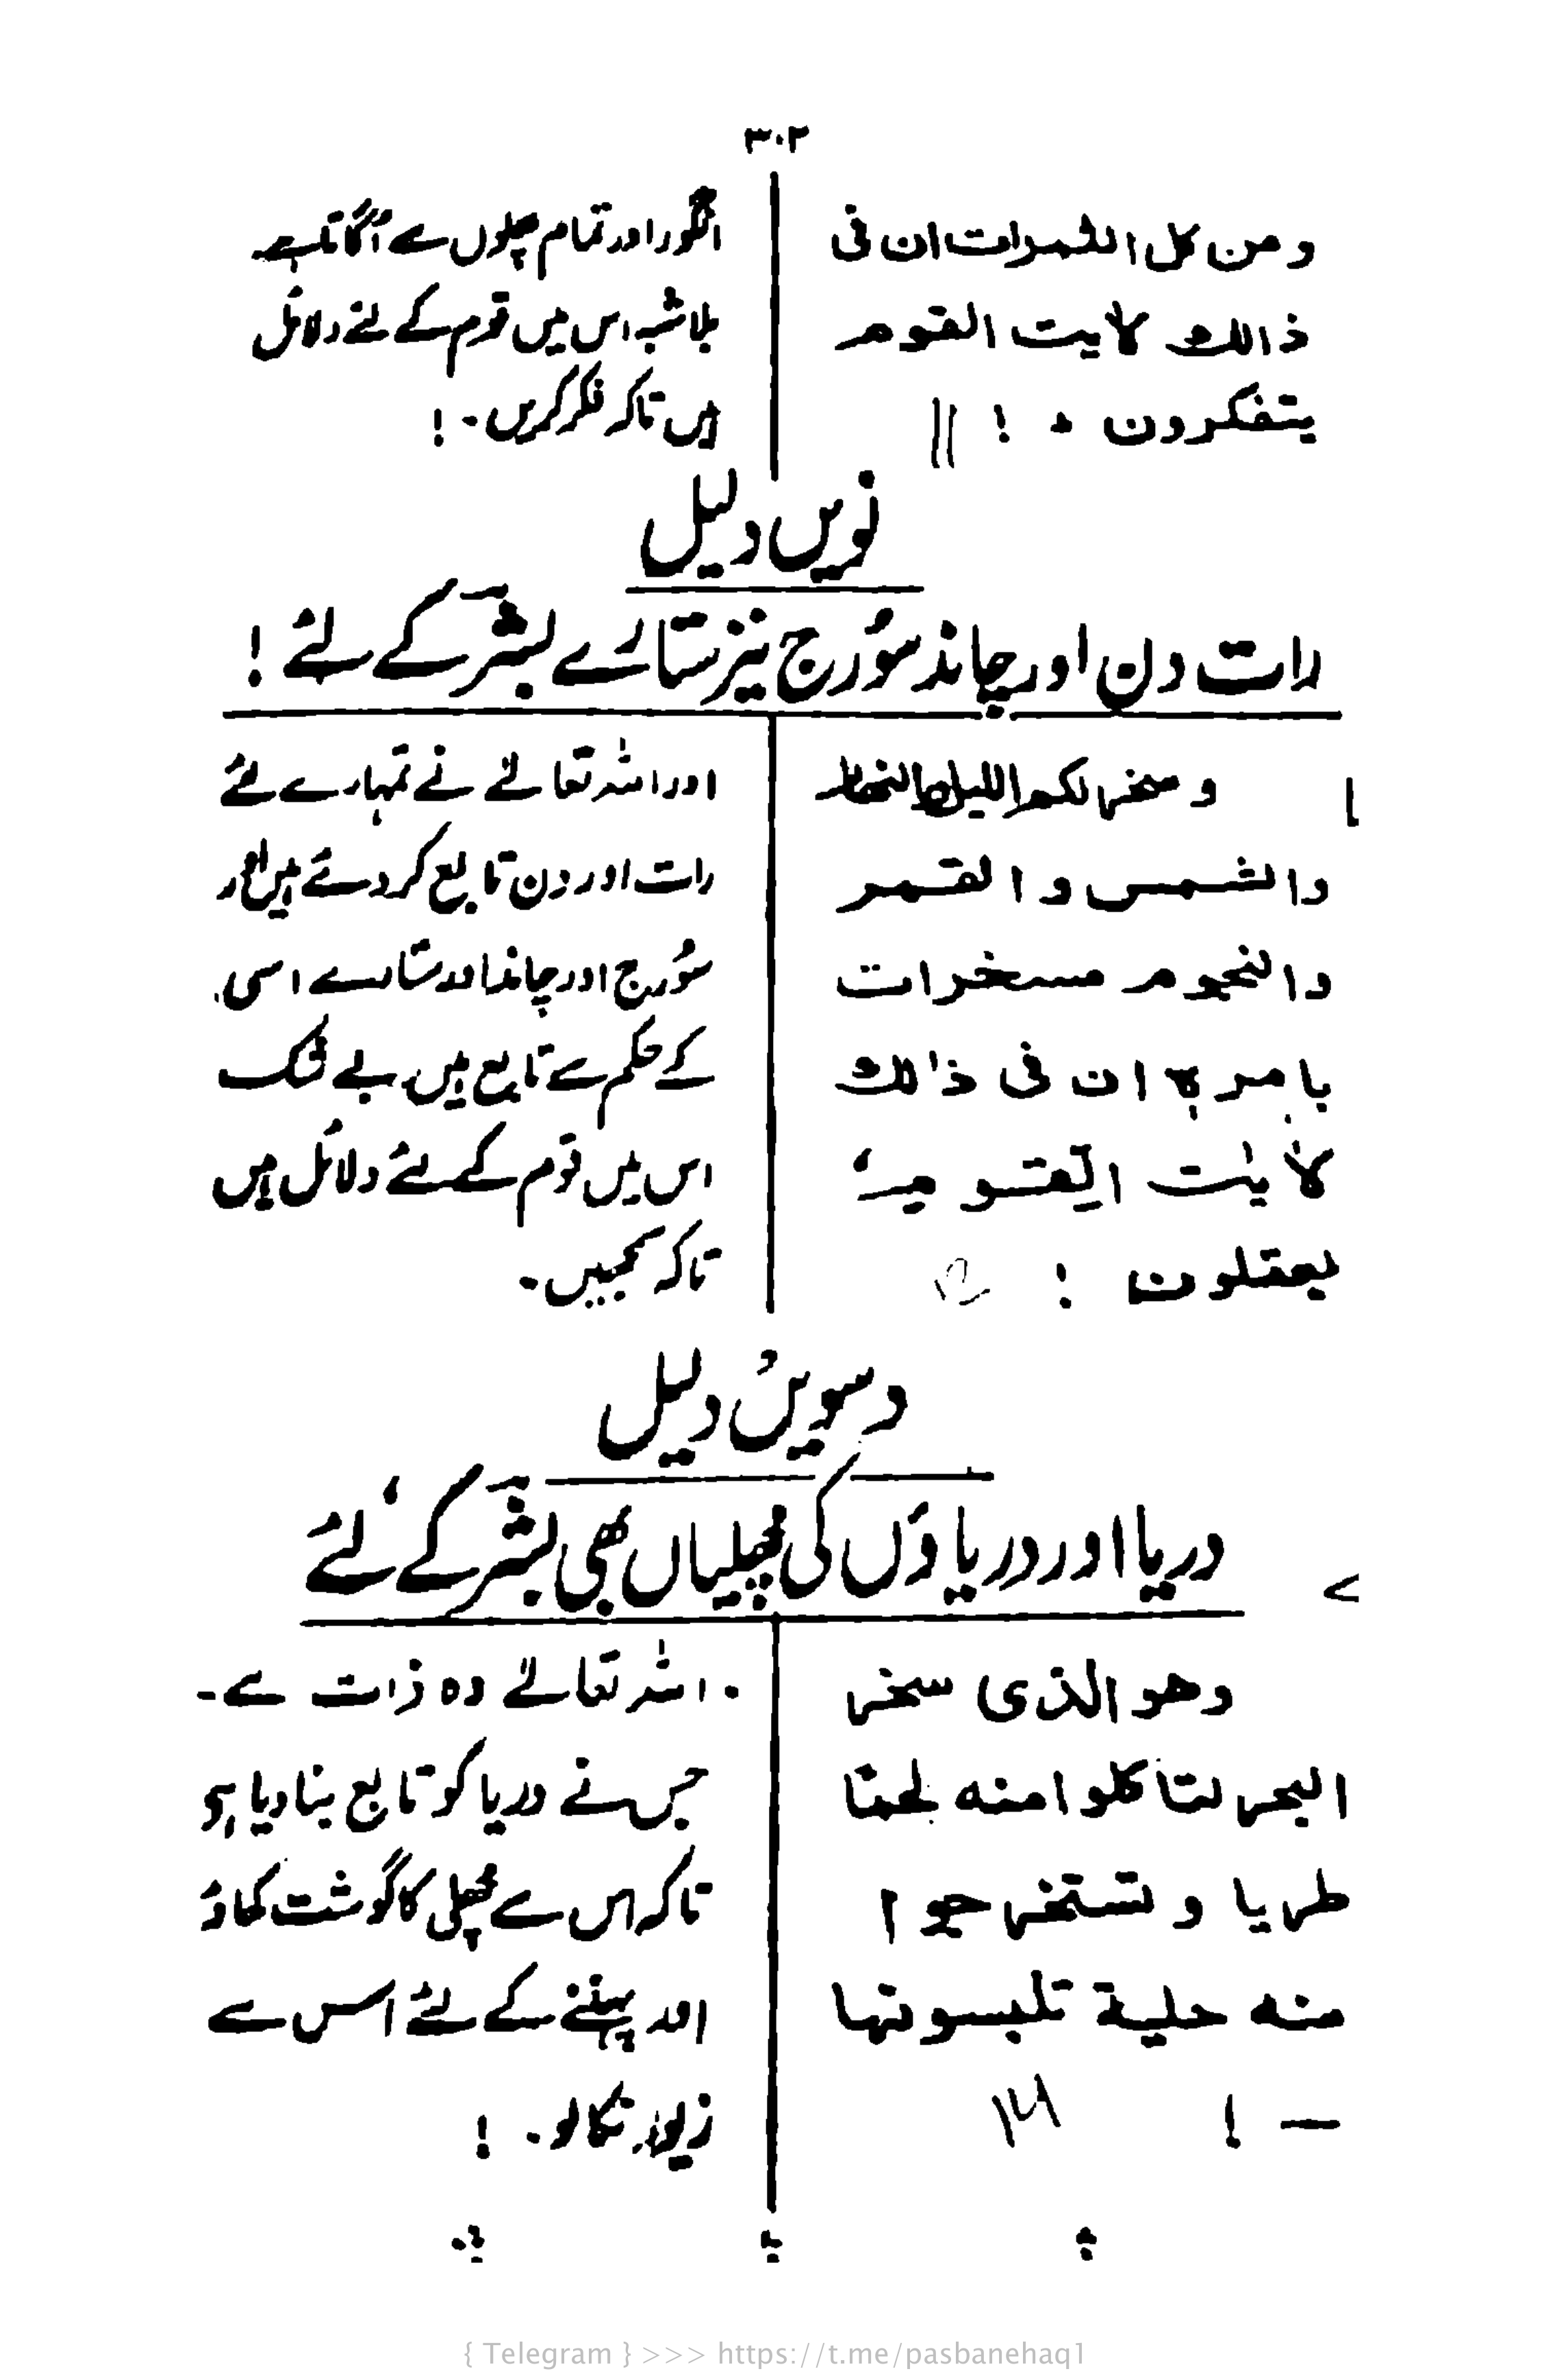 ۳۰۲
ومن كل الثمرات ان فى
ذالك لأيت القوم
يتفكرون ۰ ! ||
انگور اور تمام پھلوں سے اگاتا ہے
بلاشبہ اس میں قوم کے لئے دلائل
ہیں تاکہ فکر کریں۔ !
نویں دلیل
رات دن اور چاند سُورج نیز ستارے بشر کے لئے !
و سخر لكم الليل والنهار
والشمس و القمر
والنجوم مسخرات
بامرہ ان فى ذالك
لأيت القوم،
يعقلون !
اور اللہ تعالےٰ نے تمہارے لئے
رات اور دن تابع کر دئے ہیں اور
سُورج اور چاند اور ستارے اسی
کے حکم سے تابع ہیں بے شک
اس میں قوم کے لئے دلائل ہیں
تاکہ سمجھیں۔
دسویں دلیل
دریا اور دریاؤں کی مچھلیاں بھی بشر کے لئے
وهو الذى سخر
البحر لتاكلوا منه لحمًا
طريا و تستخرجوا
منه حلية تلبسونها
— ! ۱۴
اللہ تعالےٰ وہ ذات ہے۔
جس نے دریا کو تابع بنا دیا ہے
تاکہ اس سے مچھلی کا گوشت کھاؤ
اور پہننے کے لئے اس سے
زیور نکالو۔ !
{ Telegram } >>> https://t.me/pasbanehaq1